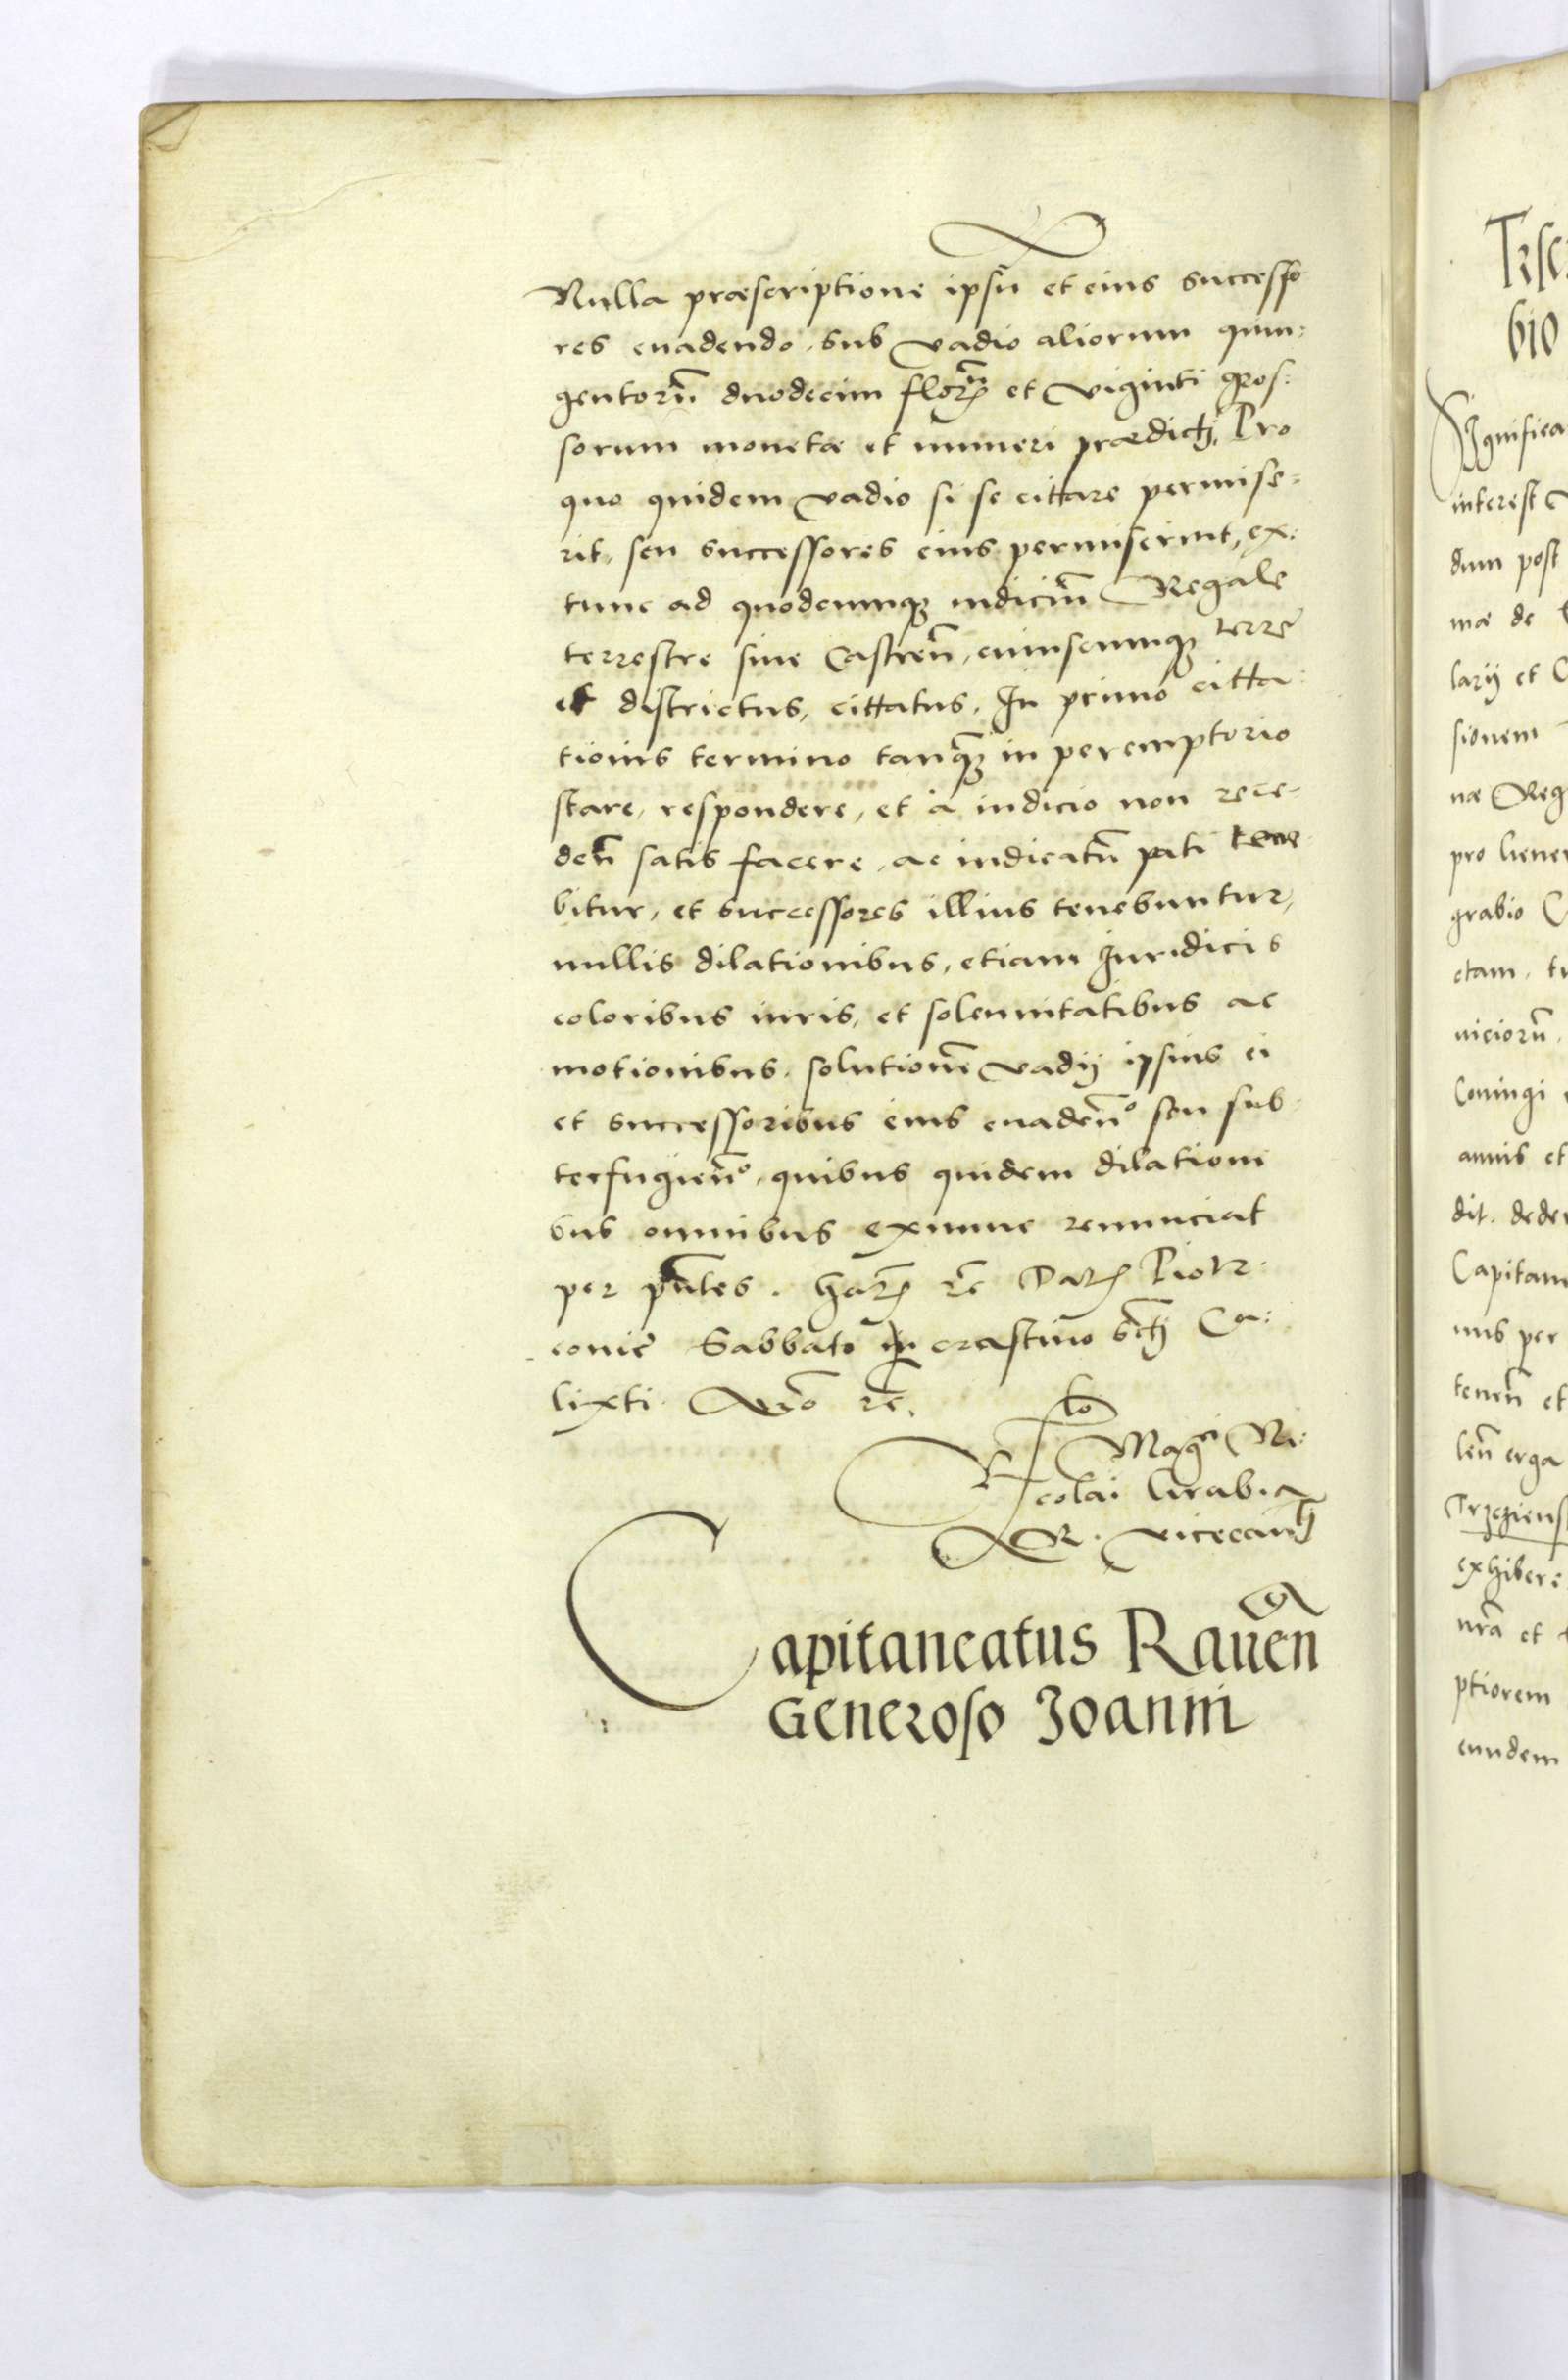 Nulla præscriptione ipsũ et eius successo
res euadendo, sub vadio aliorum quin:
gentorũ duodecim florẽ et viginti gros:
sorum monetæ et numeri prædicti, Pro
quo quidem vadio si se cittare permise=
rit, seu successores eius permiserint, ex:
tunc ad quodcunqȝ iudiciũ Regale
terrestre siue Castreñ, cuiuscunqȝ terrę
et districtus, cittatus, In primo citta:
tionis termino tanqȝ in peremptorio
stare, respondere, et à iudicio non rece-
deñ satis facere, ac iudicatũ pati tene
bitur, et successores illius tenebuntur,
nullis dilationibus, etiam Iuridicis
coloribus iuris, et solennitatibus ac
motionibus, solutionẽ vadij ipsius ei
et successoribus eius euadeñº seu sub
terfugieñº, quibus quidem dilationi
bus omnibus exnunc renunciat
per pñtes. Harȝ rc̃ Datȝ Piotr
conię Sabbato in crastino scti Ca:
lixti. Aõ rc̃.
Rlo
Magci Ni:
colai Grabia
R. vicecan
Capitaneatus Raueñ
Generoso Joanni
Trſc
bio
Significa
interest
dum post
mæ de
larij et C
sionem
næ Reg
pro bene
grabio C
etam, tu
niciorũ
Coningi
annis et
dit. dede
Capitan
nus per
teneñ et
leñ erga
Trzciens
exhibere
nrã et
ptiorem
eundem